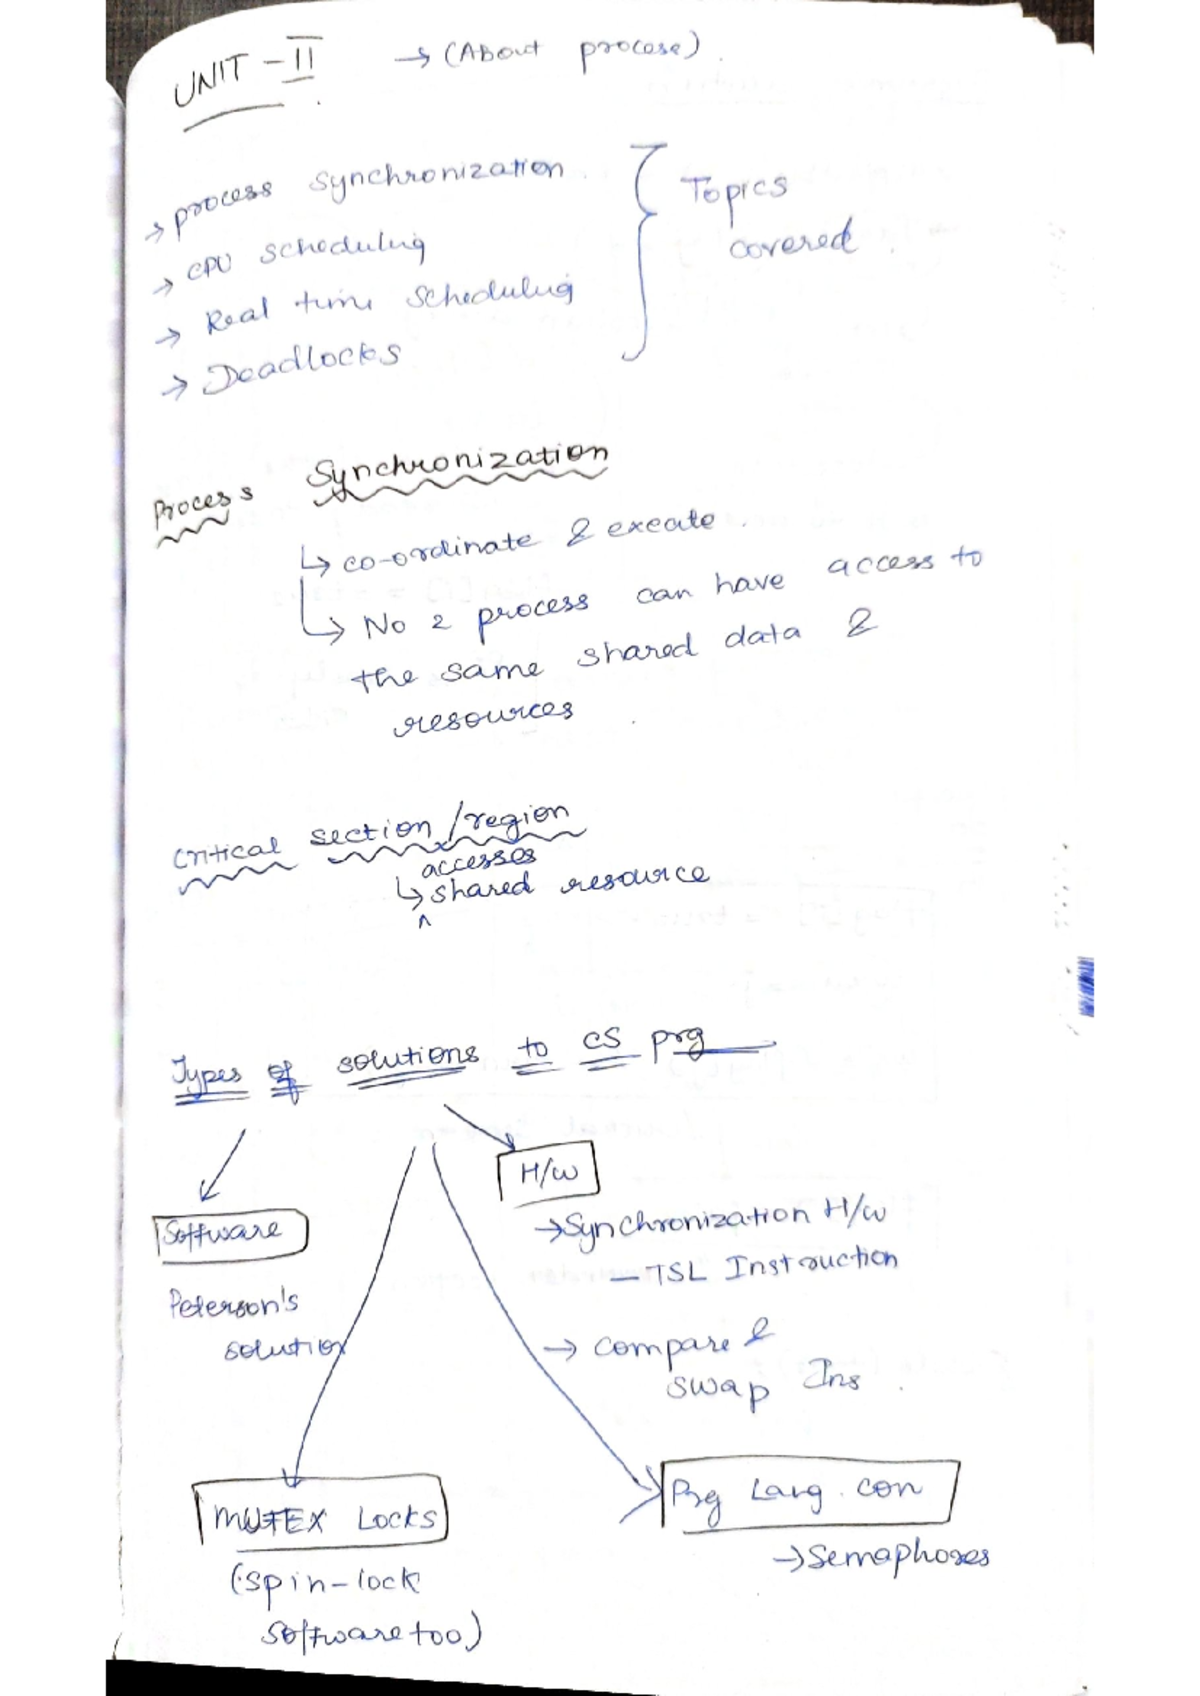 UNIT - II → (About process)
→ process synchronization
→ CPU scheduling
→ Real time scheduling
→ Deadlocks
Topics
covered
Process Synchronization
↳ co-ordinate & execute
↳ No 2 process can have access to
the same shared data &
resources
Critical section/region
accesses
↳ shared resource
^
Types of solutions to CS prg
H/w
→ Synchronization H/w
— TSL Instruction
→ compare &
swap Ins
Software
Peterson's
solution
MUTEX Locks
(spin-lock
software too)
Prg Lang. con
→ Semaphores